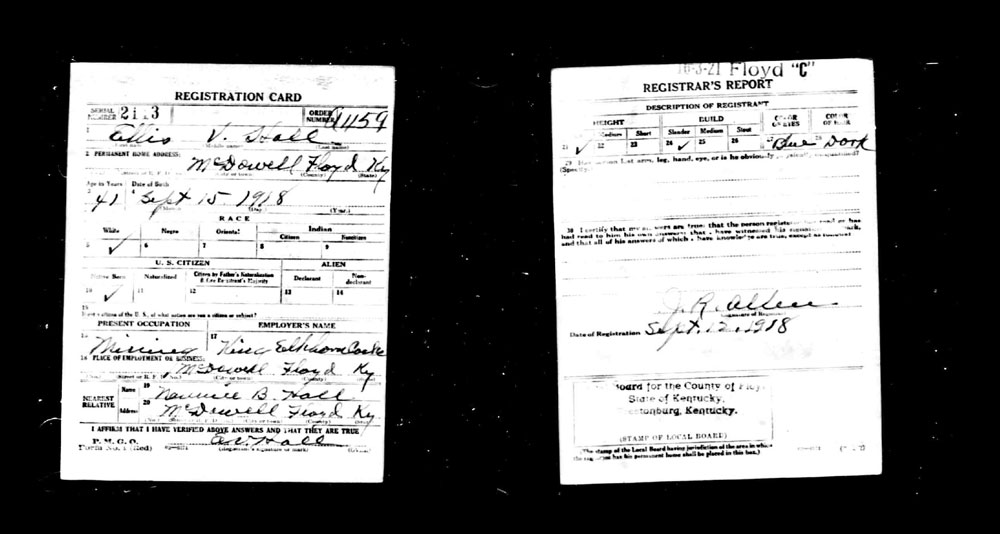 REGISTRATION CARD
SERIAL NUMBER 2113 ORDER NUMBER A1159
1 V. Hall
2 PERMANENT HOME ADDRESS:
McDowell Floyd Ky
(County) (State)
Age in Years Date of Birth
3 41 4 Sept 15 1918
(Month) (Day) (Year)
RACE
White Negro Oriental Indian
Citizen Noncitizen
5 ✓ 6 7 8 9
U. S. CITIZEN ALIEN
Native Born Naturalized Citizen by Father's Naturalization Declarant Non-declarant
10 ✓ 11 12 13 14
15
If not a citizen of the U. S., of what nation are you a citizen or subject?
PRESENT OCCUPATION EMPLOYER'S NAME
16 Mining 17 King Elkhorn Coal Co
18 PLACE OF EMPLOYMENT OR BUSINESS:
McDowell Floyd Ky
(City or town) (County) (State)
NEAREST RELATIVE Name 19 B. Hall
Address 20 McDowell Floyd Ky
(County) (State)
I AFFIRM THAT I HAVE VERIFIED ABOVE ANSWERS AND THAT THEY ARE TRUE
P. M. G. O.
Form No. 1 (Red) A V Hall
(Registrant's signature or mark) (OVER)
Floyd "C"
REGISTRAR'S REPORT
DESCRIPTION OF REGISTRANT
HEIGHT BUILD COLOR OF EYES COLOR OF HAIR
Medium Short Slender Medium Stout
21 ✓ 22 23 24 ✓ 25 27 Blue 28 Dark
29 Has person lost arm, leg, hand, eye, or is he obviously physically disqualified?
(Specify.)
30 I certify that my answers are true; that the person registered has read or has
had read to him his own answers; that I have witnessed his signature or mark,
and that all of his answers of which I have knowledge are true, except as follows:
J. R. Allen
(Signature of Registrar)
Date of Registration Sept. 12, 1918
Board for the County of Floyd
State of Kentucky,
Kentucky.
(STAMP OF LOCAL BOARD)
(The stamp of the Local Board having jurisdiction of the area in which
the registrant has his permanent home shall be placed in this box.)